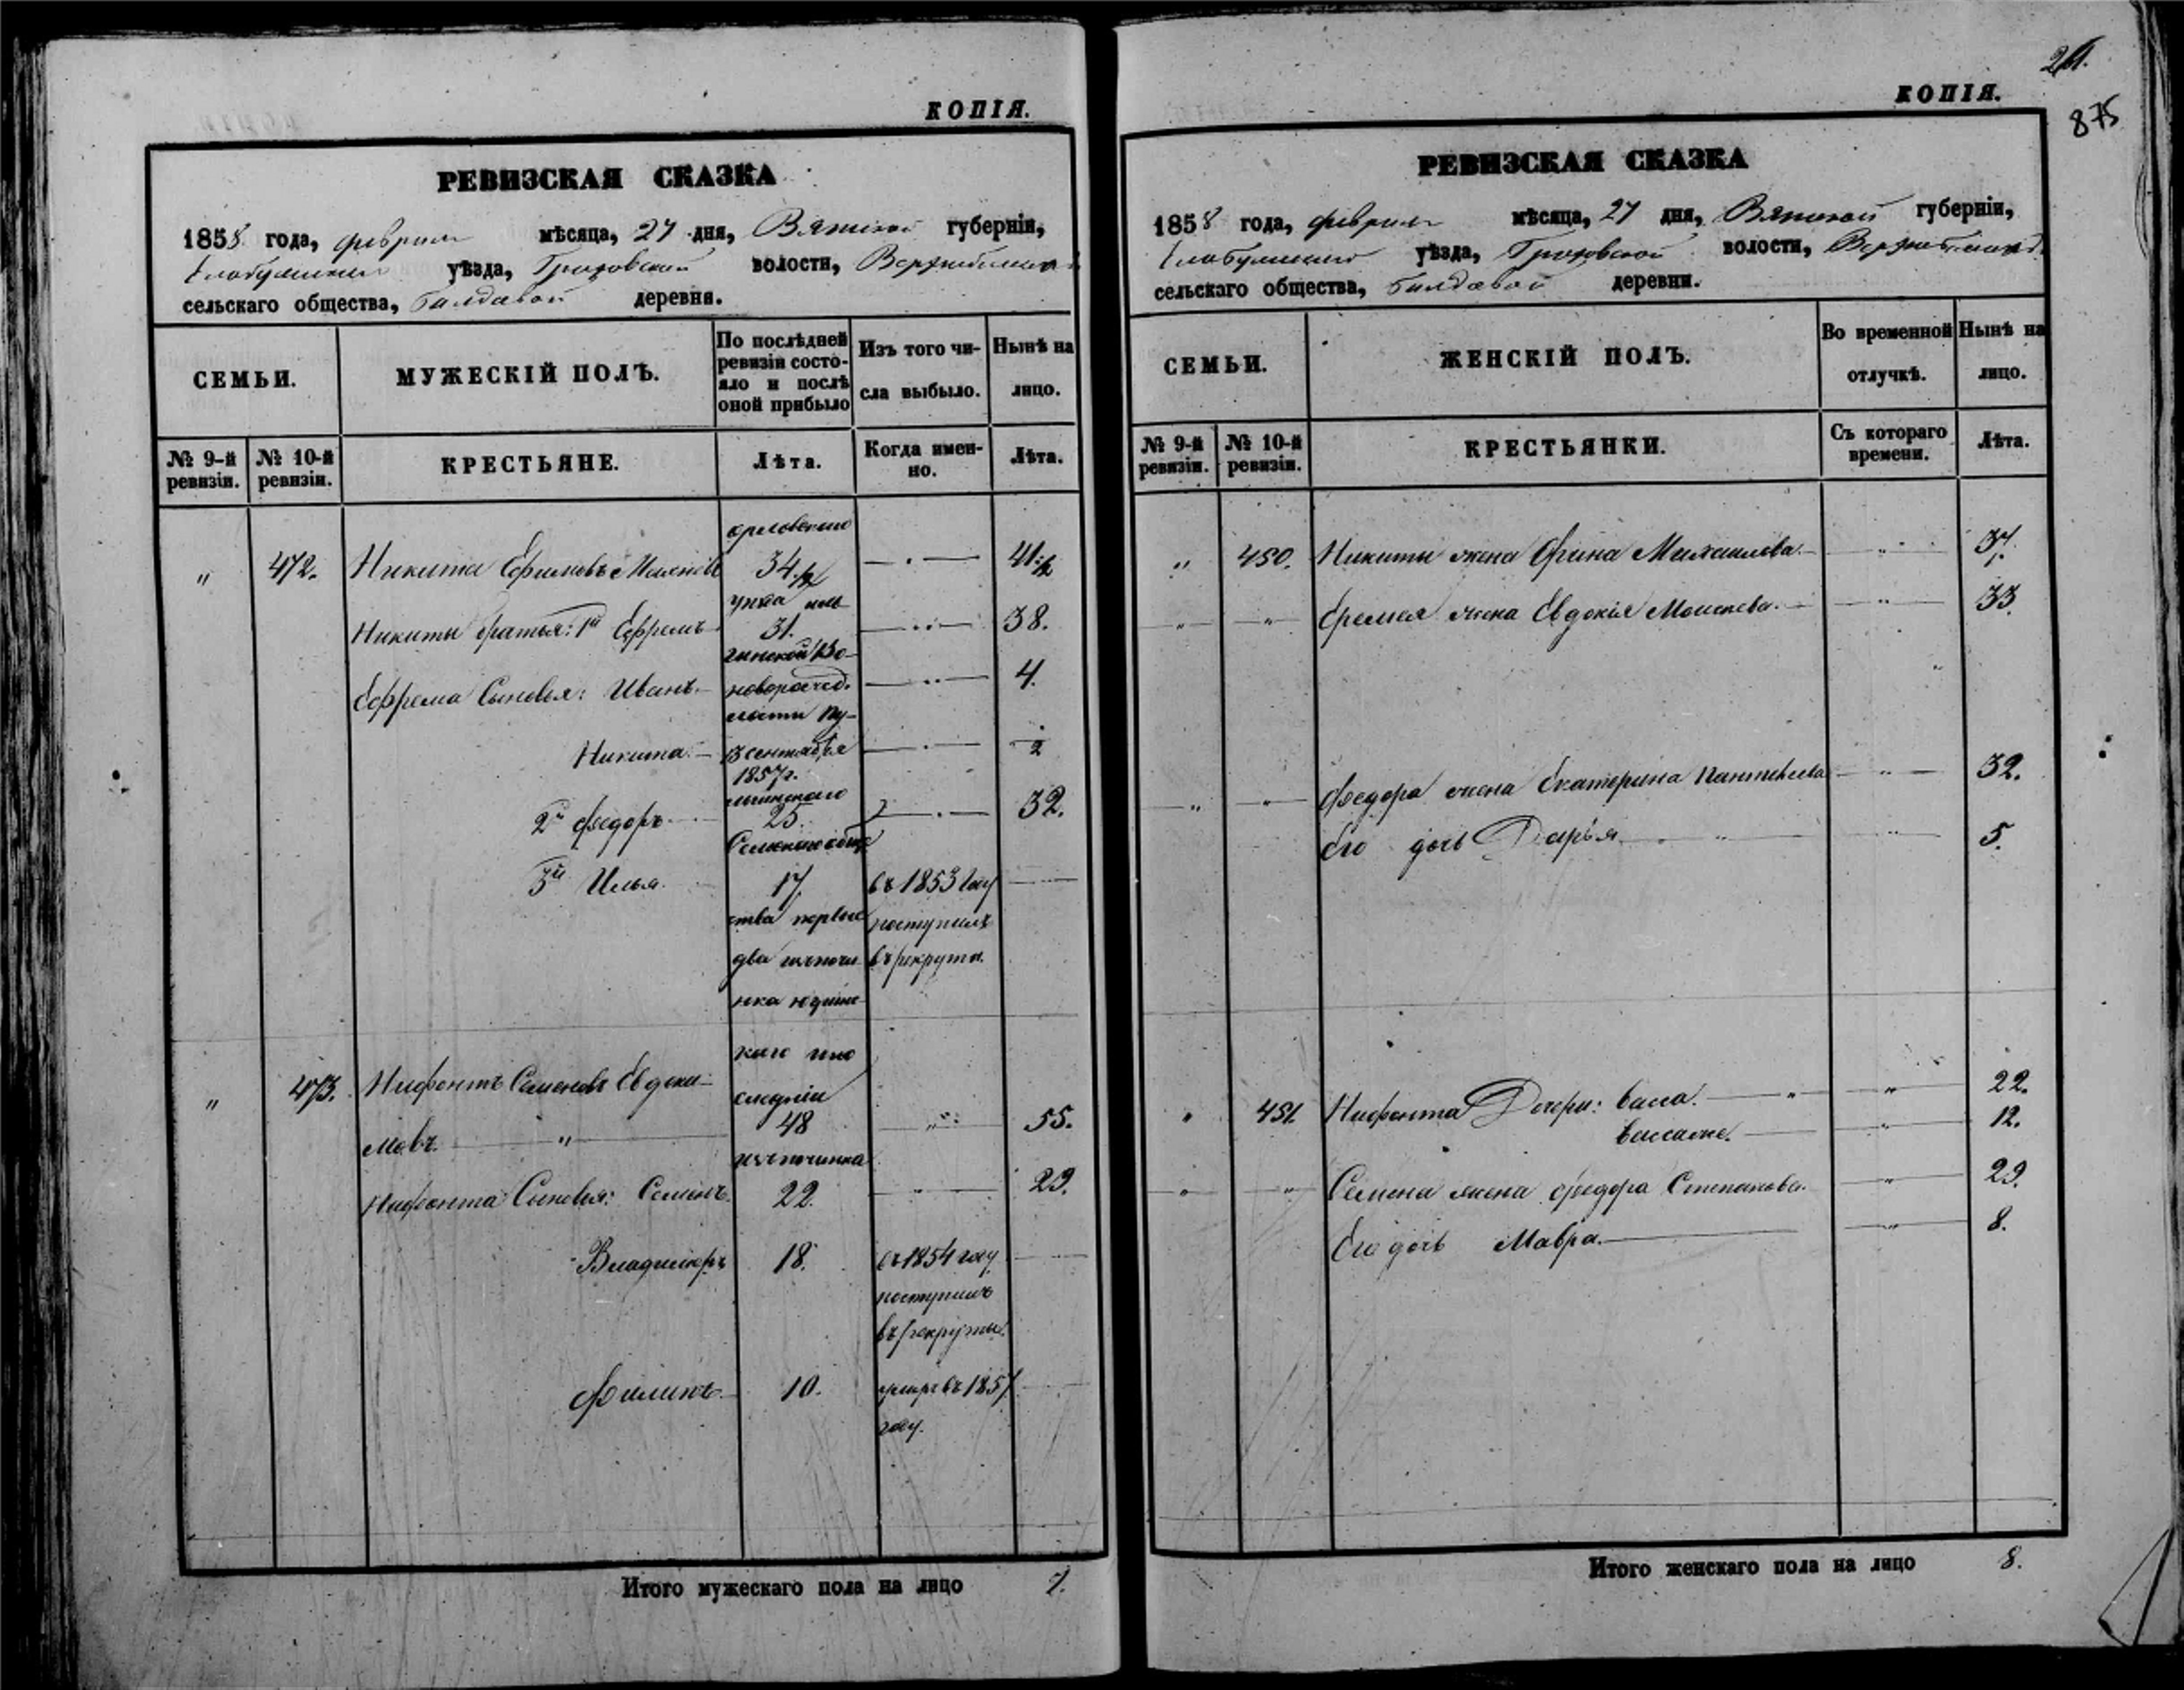 КОПІЯ.
РЕВИЗСКАЯ СКАЗКА
1858 года, февраля мѣсяца, 27 дня, Вятской губерніи,
Елабужскаго уѣзда, Граховской волости,
сельскаго общества, деревня.
СЕМЬИ.
МУЖЕСКІЙ ПОЛЪ.
По послѣдней ревизіи состо-
яло и послѣ
оной прибыло
Изъ того чи-
сла выбыло.
Нынѣ на
лицо.
№ 9-й
ревизіи.
№ 10-й
ревизіи.
КРЕСТЬЯНЕ.
Лѣта.
Когда имен-
но.
Лѣта.
орловскаго
" 472. Никита Ефимовъ 34 1/2 41 1/2
уѣзда
Никиты братья: 1й Ефремъ 31. 38.
гинской Во-
Ефрема Сыновья: Иванъ. новорожд. 4.
лости Пу-
Никита. въ сентябрѣ 1/2
1857 г.
2й Федоръ 25. 32.
Сельскаго общ
3й Илья. 17. въ 1853 году
ства первые поступилъ
два изъ почи въ рекруты.
нка
каго а по
" 473. Нифонтъ Семеновъ Евдоки-
следніи
мовъ. " 48 " 55.
изъ починка
Нифонта Сыновья: Семенъ. 22. " 29.
Владимиръ 18. въ 1854 году
поступилъ
въ рекруты.
Филипъ. 10. умеръ въ 1857
году.
Итого мужескаго пола на лицо 7.
875
КОПІЯ.
РЕВИЗСКАЯ СКАЗКА
1858 года, февраля мѣсяца, 27 дня, Вятской губерніи,
Елабужскаго уѣзда, Граховской волости,
сельскаго общества, деревни.
СЕМЬИ.
ЖЕНСКІЙ ПОЛЪ.
Во временной
отлучкѣ.
Нынѣ на
лицо.
№ 9-й
ревизіи.
№ 10-й
ревизіи.
КРЕСТЬЯНКИ.
Съ котораго
времени.
Лѣта.
" 450. Никиты жена Орина Михаилова. " 37.
" " Ефрема жена Евдокія Моисеева. " 33.
" " Федора жена Екатерина Пантелеева " 32.
Его дочь Дарья. " " 5.
" 451. Нифонта Дочери: Васса. " " 22.
Вассаже. " 12.
" " Семена жена Федора Степанова. " 29.
Его дочь Мавра. " 8.
Итого женскаго пола на лицо 8.